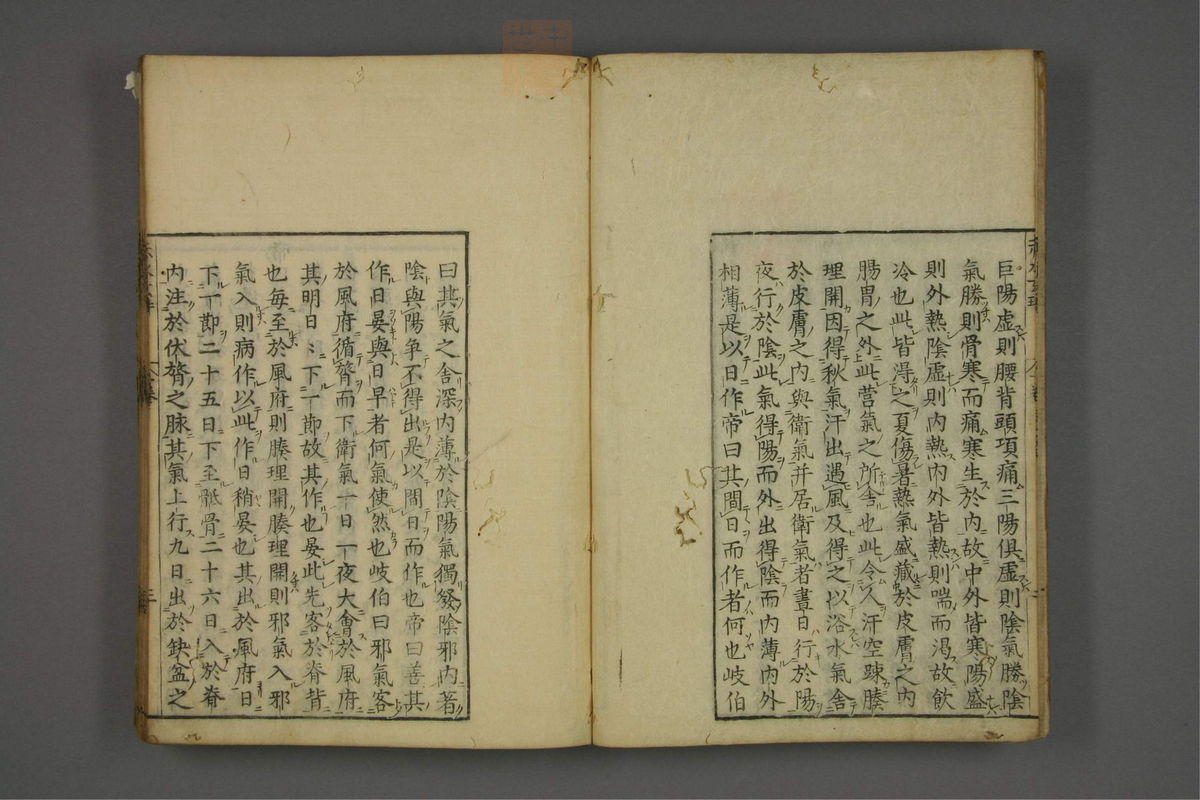 巨陽虚則腰背頭項痛三陽俱虚則陰氣勝陰
氣勝則骨寒而痛寒生於内故中外皆寒陽盛
則外熱陰虚則内熱内外皆熱則喘而渴故飲
冷也此皆淂之夏傷暑熱氣盛藏於皮膚之内
腸胃之外此營氣之所舎也此令人汗空踈腠
理開因得秋氣汗出遇風及得之以浴水氣舎
於皮膚之内與衛氣并居衛氣者晝日行於陽
夜行於陰此氣得陽而外出得陰而内薄内外
相薄是以日作帝曰其間日而作者何也岐伯
曰其氣之舎深内薄於陰陽氣獨發陰邪内著
陰與陽争不得出是以間日而作也帝曰善其
作日晏與日早者何氣使然也岐伯曰邪氣客
於風府循膂而下衛氣一日一夜大會於風府
其明日〻下一節故其作也晏此先客於脊背
也毎至於風府則腠理開腠理開則邪氣入邪
氣入則病作以此作日稍晏也其出於風府日
下一節二十五日下至骶骨二十六日入於脊
内注於伏膂之脉其氣上行九日出於缺盆之